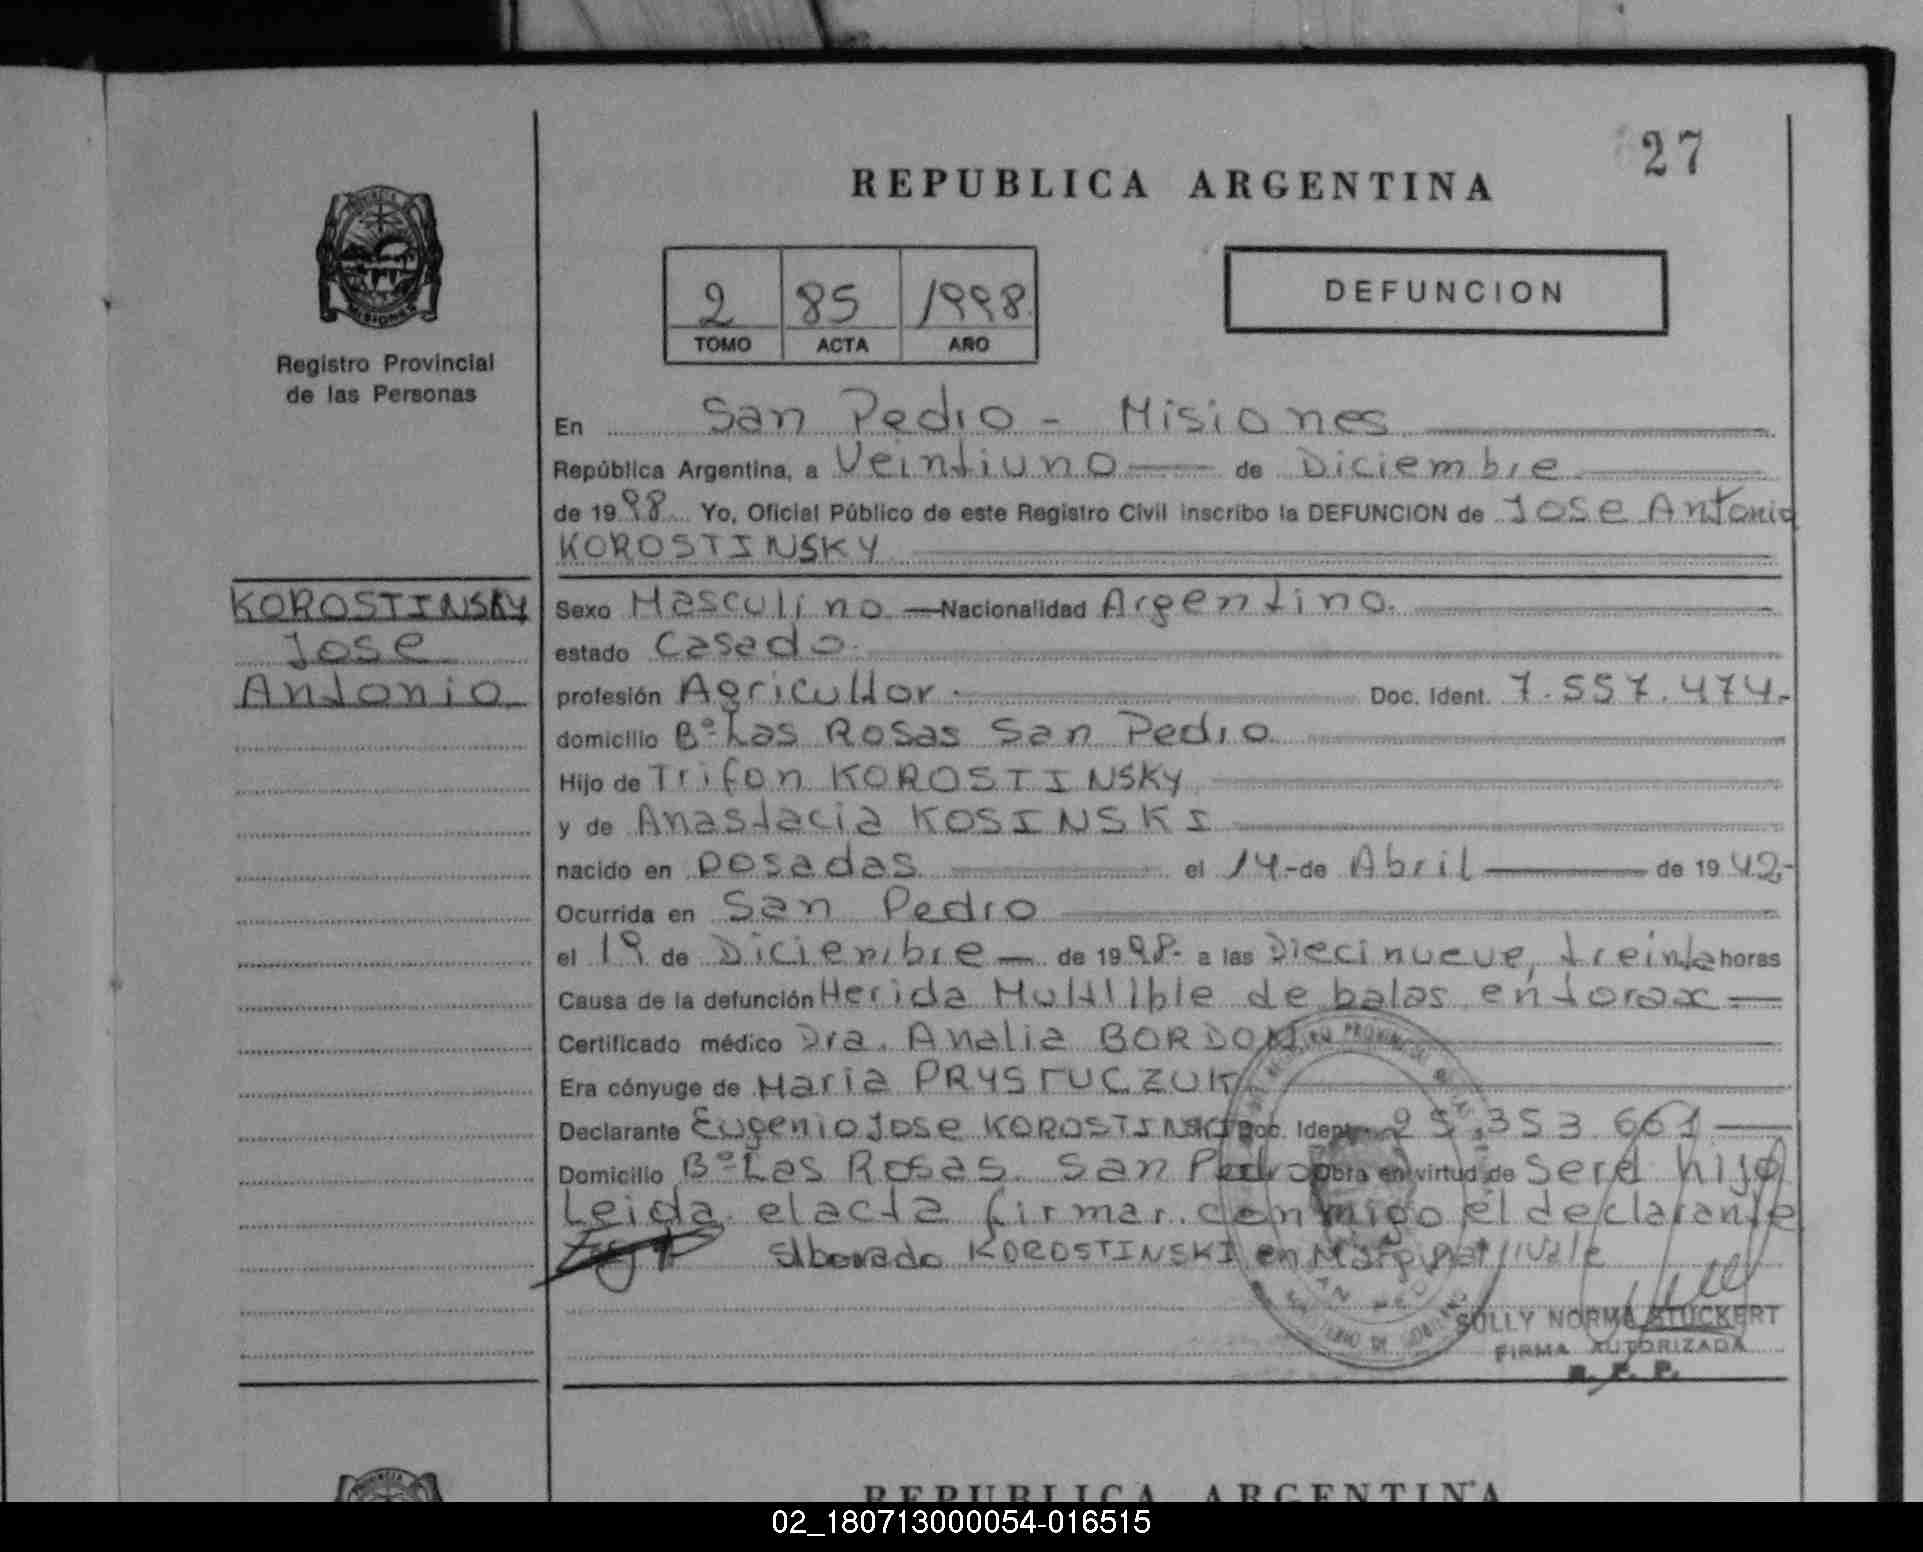 27
REPUBLICA ARGENTINA
2 85 1998
TOMO ACTA AÑO
DEFUNCION
MISIONES
Registro Provincial
de las Personas
En San Pedro - Misiones
República Argentina, a Veintiuno de Diciembre
de 1998. Yo, Oficial Público de este Registro Civil inscribo la DEFUNCION de Jose Antonio
KOROSTINSKY
KOROSTINSKY
Jose
Antonio
Sexo Masculino Nacionalidad Argentino.
estado Casado.
profesión Agricultor. Doc. Ident. 7.557.474.-
domicilio Bº Las Rosas San Pedro
Hijo de Trifon KOROSTINSKY
y de Anastacia KOSINSKI
nacido en Posadas el 14-de Abril de 1942.-
Ocurrida en San Pedro
el 19 de Diciembre de 1998. a las Diecinueve, treinta horas
Causa de la defunción Herida Multlible de balas en torax
Certificado médico Dra. Analia BORDON
Era cónyuge de Maria PRYSTUCZUK
Declarante Eugenio Jose KOROSTINSKI Doc. Ident. 25.353.661
Domicilio Bº Las Rosas. San Pedro obra en virtud de Ser el hijo
Leida el acta firmar conmigo el declarante
KOROSTINSKI en
SULLY NORMA STUCKERT
FIRMA AUTORIZADA
R. P. P.
REPUBLICA ARGENTINA
02_180713000054-016515